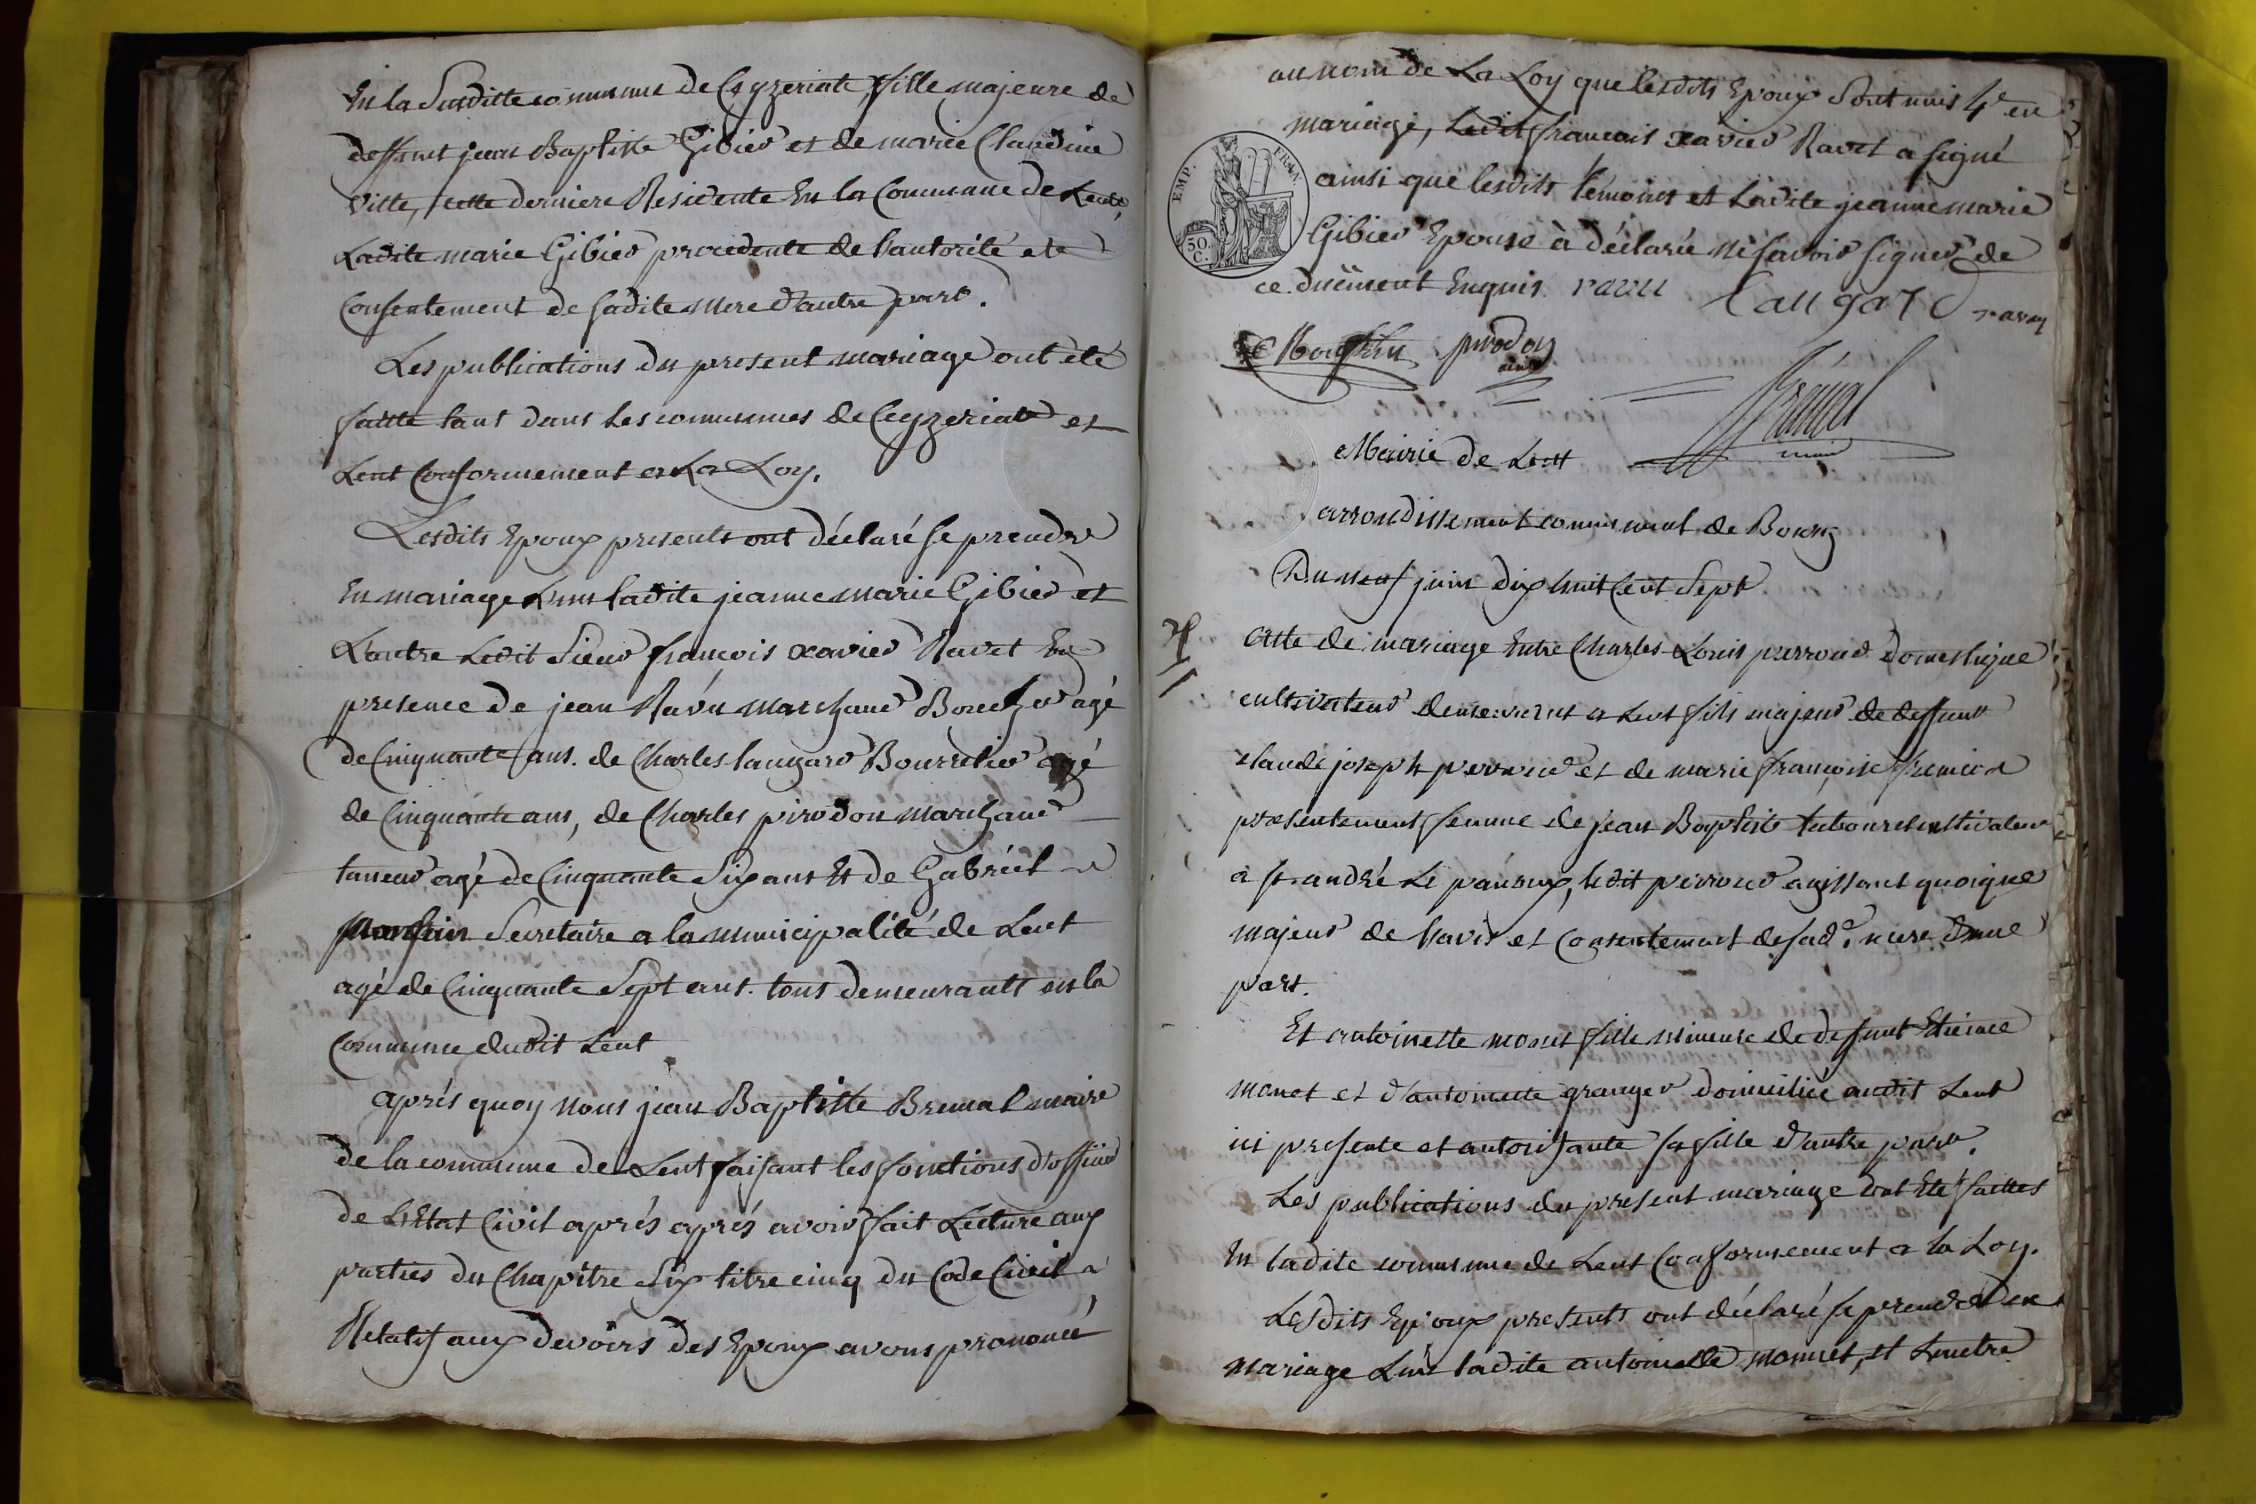 En la Susditte commune de Ceyzeriate, fille majeure de
deffunt jean Baptiste Gibier et de marie Claudine
Vitte, cette derniere Residente En la Commune de Lent,
Ladite marie Gibier procedente de l'autorité et
Consentement de sadite mere d'autre part.
Les publications du present mariage ont été
faitte tant dans les communes de Ceyzeriat et
Lent Conformement a La Loy.
Lesdits Epoux presents ont déclaré se prendre
En mariage L'un ladite jeanne marie Gibier et
L'autre Ledit Sieur françois xavier Ravet En
presence de jean Ravu marchand Boucher agé
de Cinquante ans. de Charles laugard Bourrelier agé
de Cinquante ans, de Charles pirodon marchand
tanneur agé de Cinquante Six ans Et de Gabriél
Secretaire a la municipalité de Lent
agé de Cinquante Sept ans. tous demeurants en la
Commune dudit Lent
aprés quoy Nous jean Baptiste Breval maire
de la commune de Lent faisant les fonctions d'officier
de L'Etat Civil aprés aprés avoir fait Lecture aux
parties du Chapitre Six titre cinq du Code Civil
Relatif aux devoirs des Epoux avons prononcé
au nom de La Loy que lesdits Epoux Sont unis en
mariage, Ledit francois xavier Ravet a signé
ainsi que lesdits temoins et Ladite jeanne marie
Gibier Epouse à déclarée ne savoir signer de
ce duëment Enquis. ravu Laugard ravet
pirodon
ainé
Breval
maire
EMP. FRAN.
50. C.
Mairie de Lent
arrondissement communal de Bourg
Du neuf juin dix huit Cent Sept
Acte de mariage Entre Charles Louis perroud domestique
cultivateur demeurant a Lent fils majeur de deffunt
claude joseph perroud et de marie françoise
presentement femme de jean Baptiste cultivateur
a st. andré Le panoux, ledit perroud agissant quoique
majeur de l'avis et Consentement de sad.e mere d'une
part.
Et antoinette monet fille mineure de deffunt Etienne
monet et d'antoinette granger domiciliée audit Lent
ici presente et autorisante sa fille d'autre part.
Les publications du present mariage ont Eté faittes
En ladite commune de Lent Conformement a la Loy.
Lesdits Epoux presents ont déclaré se prendre en
mariage L'un ladite antoinette monnet, et L'autre